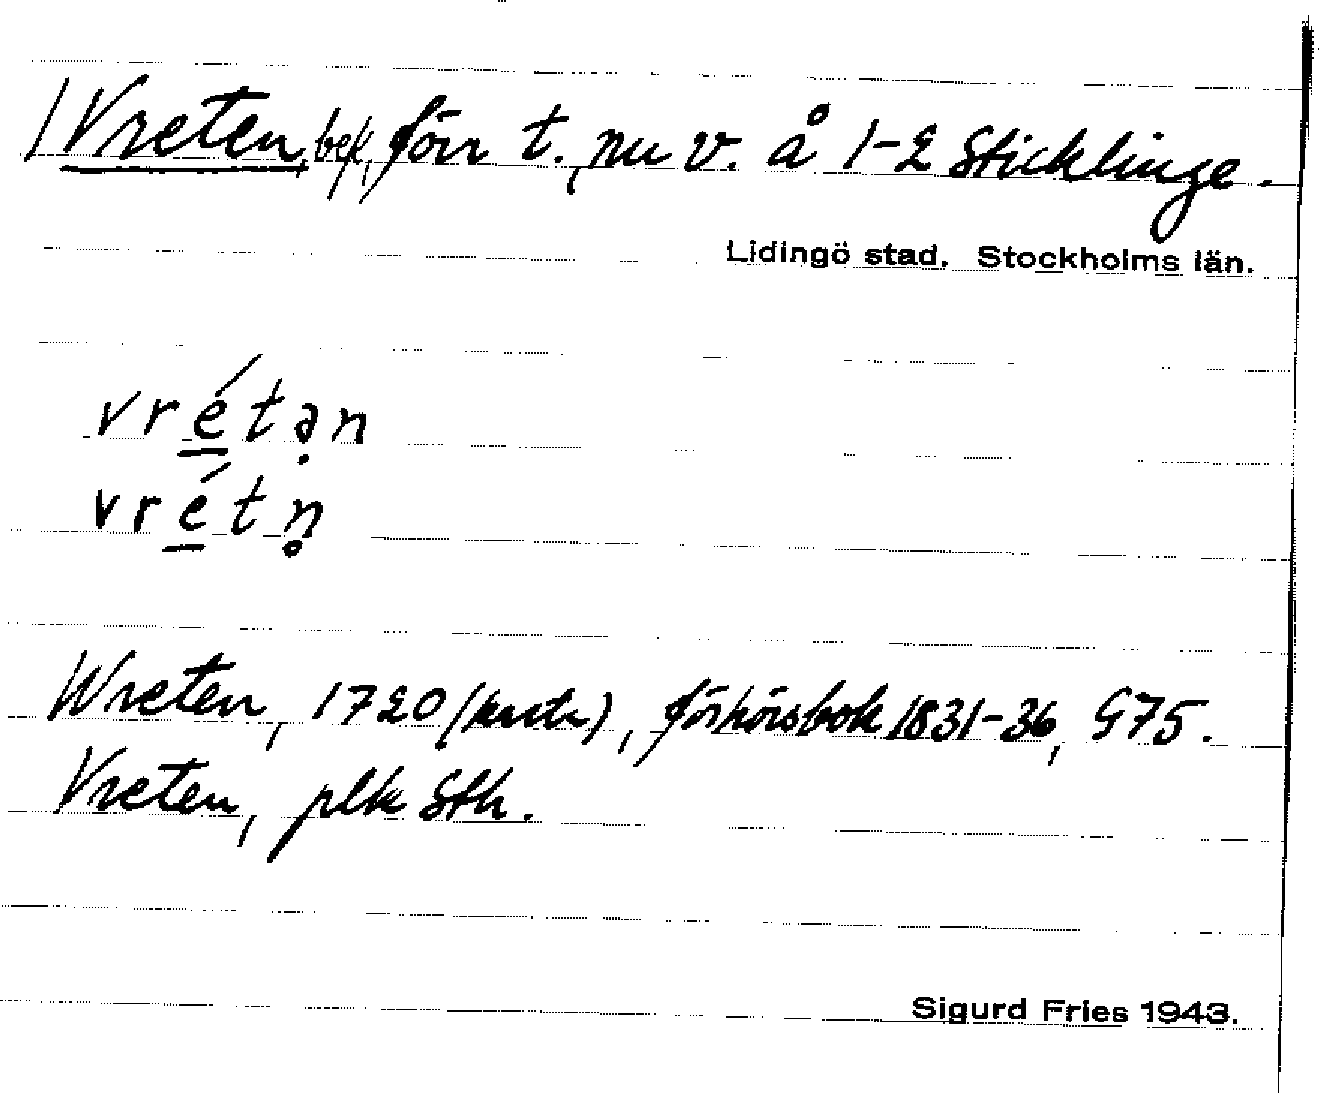 /Vreten, bef, förr t., nu v. å 1-2 Sticklinge.
Lidingö stad. Stockholms län.
vrétən
vrétn̥
Wreten, 1720 (karta), förhörsbok 1831-36, G75.
Vreten, plk Sth.
Sigurd Fries 1943.